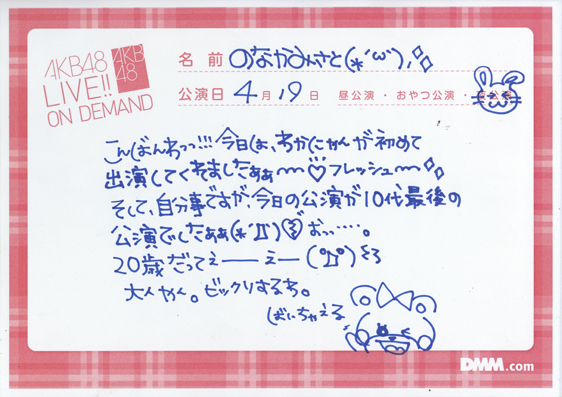 AKB48
LIVE!!
ON DEMAND
AKB
48
名前 のなかみさと(*´ω`)
公演日 4月19日 昼公演・おやつ公演・
こんばんわっっ!!!今日は、わかにゃんが初めて
出演してくれましたぁぁ〜〜♡フレッシュ〜〜
そして、自分事ですが、今日の公演が10代最後の
公演でしたぁぁ(*´Д`)おっ……。
20歳だってぇーーえー(°Д°)
大人やん。ビックリするわ。
ばいちゃえる
DMM.com